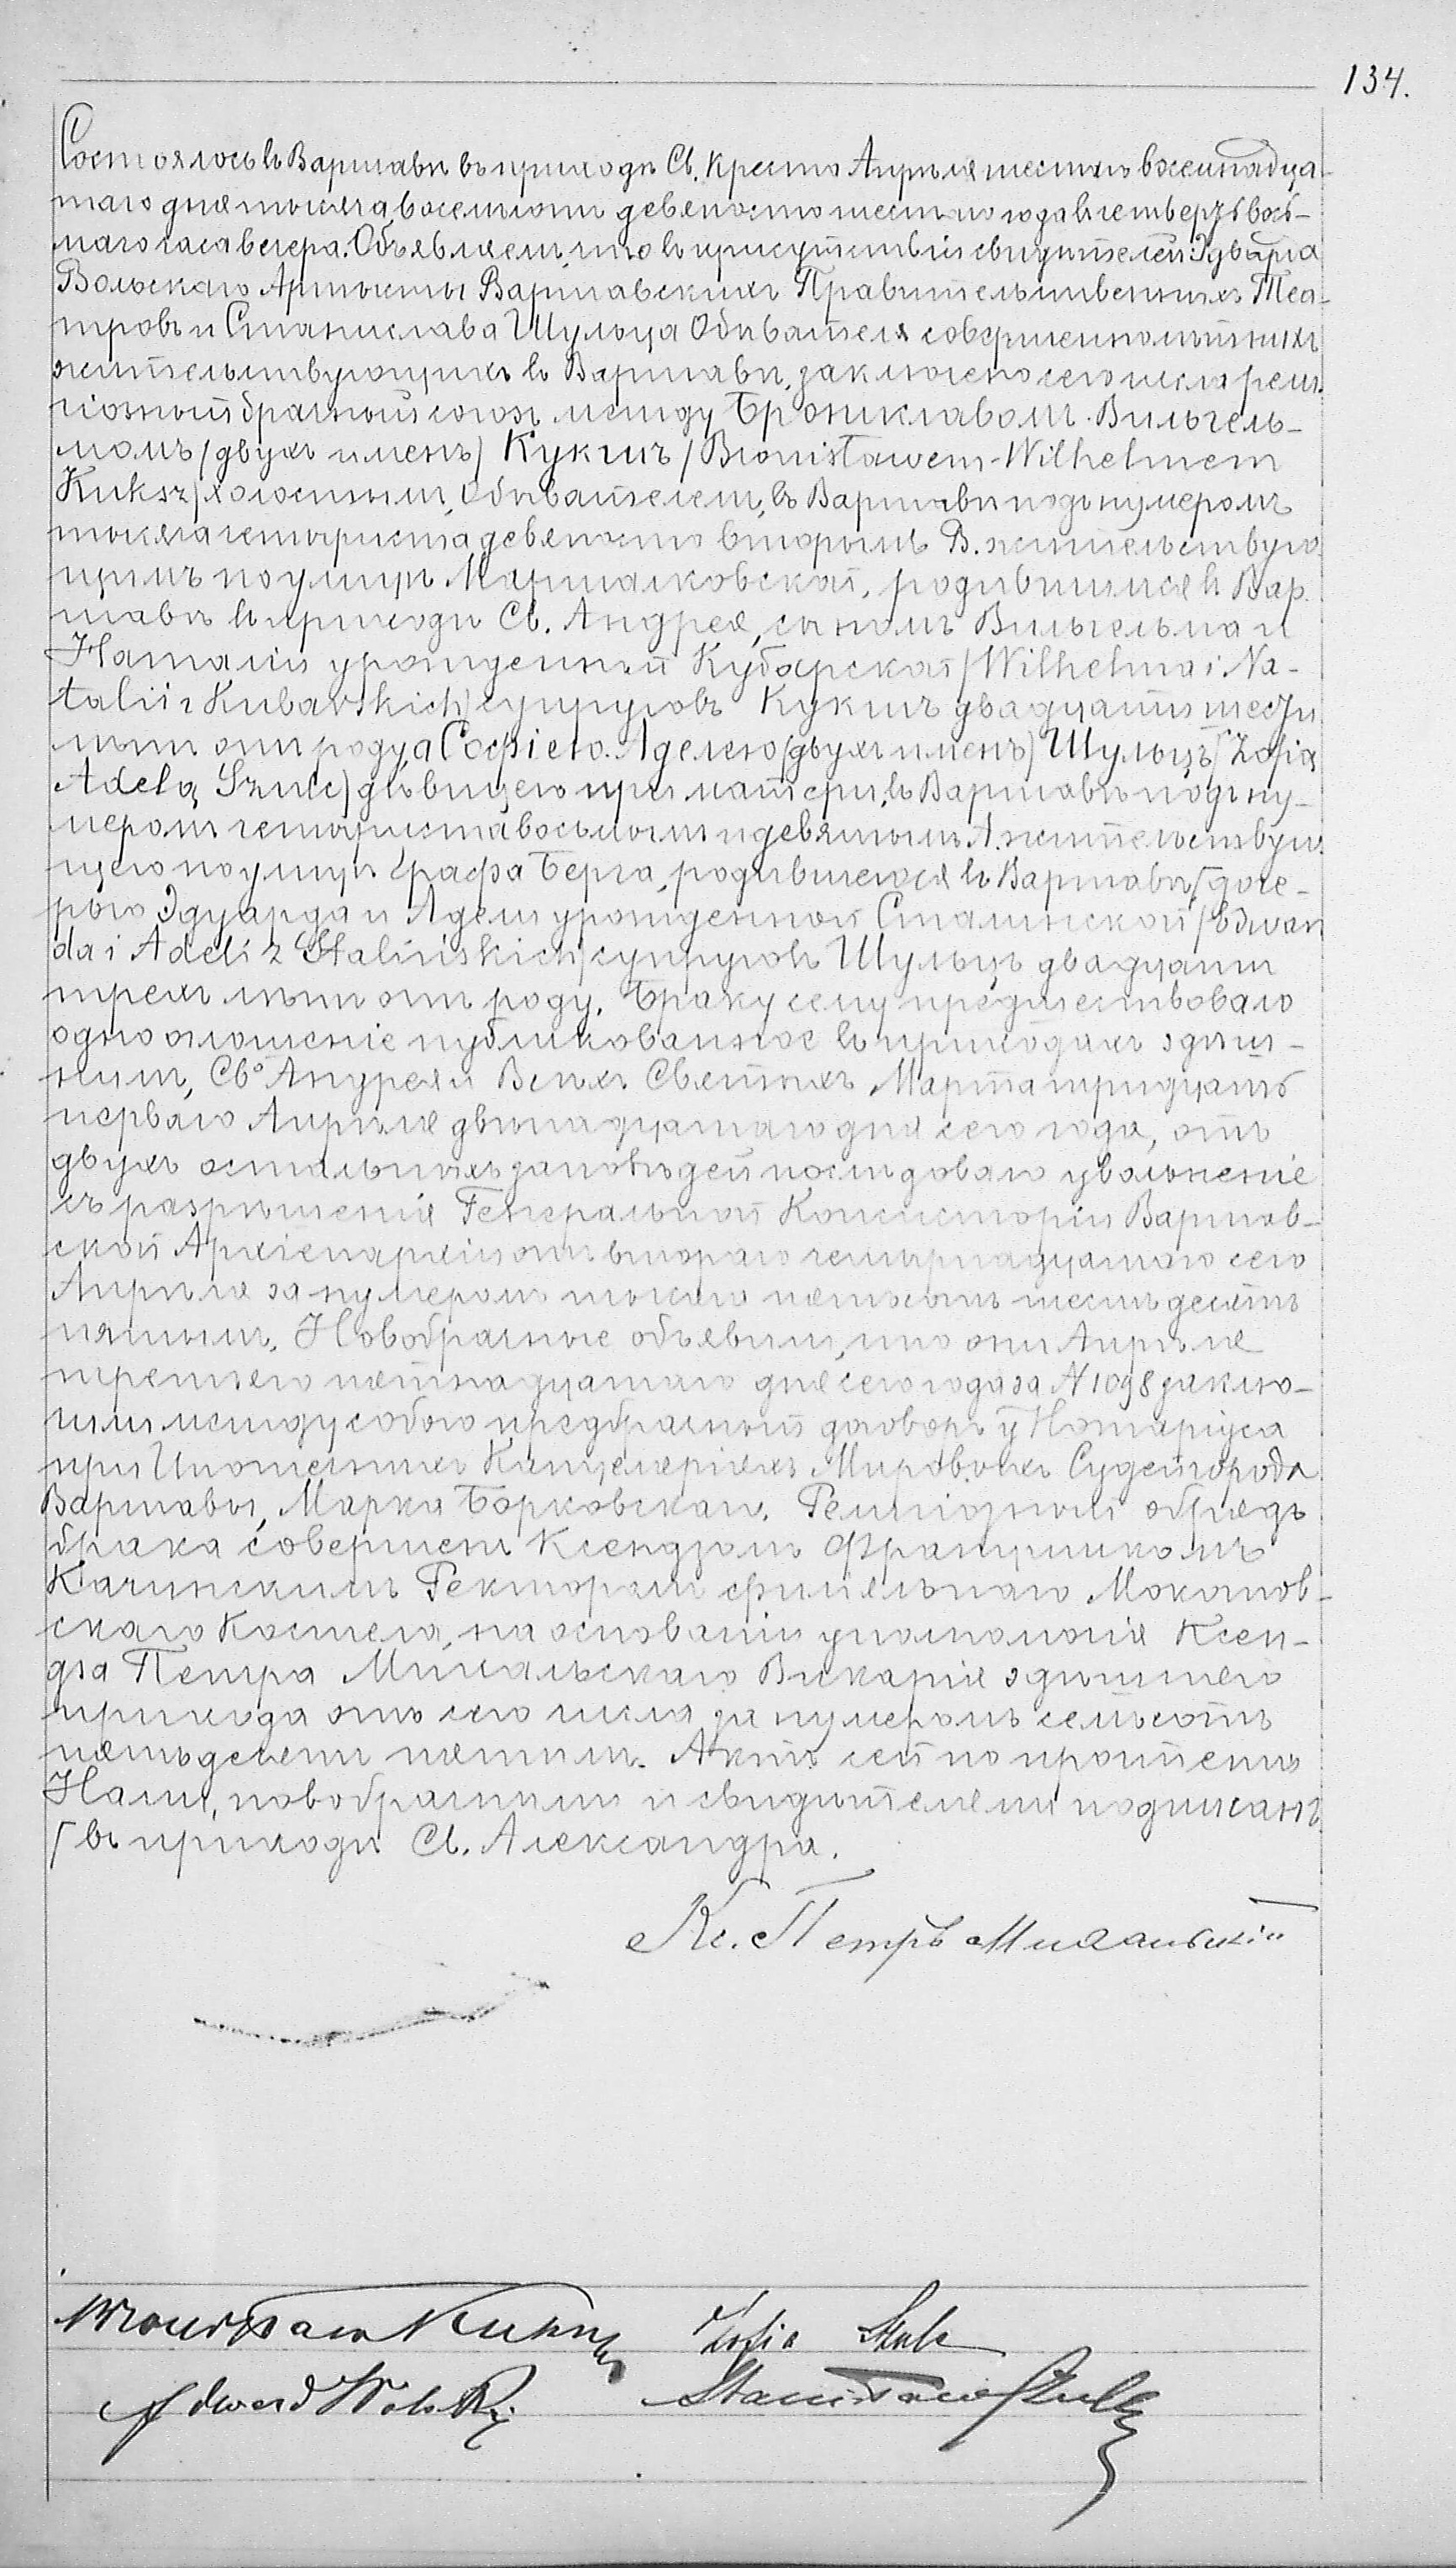 134.
Состоялось въ Варшавѣ въ приходѣ Св. Креста Апрѣля шестаго восемнадца-
таго дня тысяча восемьсотъ девяносто шестаго года въ четвергъ въ вось-
маго часа вечера. Объявляемъ, что въ присутствіи свидѣтелей Эдварда
Вольскаго Артисты Варшавскихъ Правительственныхъ Теа-
тровъ и Станислава Шульца Обывателя совершеннолѣтнихъ
жительствующихъ въ Варшавѣ, заключенъ сего числа рели-
гіозный брачный союзъ между Брониславомъ-Вильгель-
момъ /двухъ именъ/ Кукшъ /Bronisławem-Wilhelmem
Kuksz/ холостымъ, Обывателемъ, въ Варшавѣ подъ нумеромъ
тысяча четыриста девяносто вторымъ В. жительствую-
щимъ по улицѣ Маршалковской, родившимся въ Вар-
шавѣ въ приходѣ Св. Андрея, сыномъ Вильгельма и
Наталіи урожденной Кубарской /Wilhelma i Na-
talii z Kubarskich/ супруговъ Кукшъ двадцати шести
лѣтъ отъ роду, а Софіею-Аделею /двухъ именъ/ Шульцъ /Zofią
Adelą Szulc/ дѣвицею при матери, въ Варшавѣ подъ ну-
меромъ четыриста восьмомъ и девятымъ А. жительствую-
щею по улицѣ Графа Берга, родившеюся въ Варшавѣ, доче-
рью Эдуарда и Адели урожденной Сталинской /Edwar
da i Adeli z Stalińskich/ супруговъ Шульцъ двадцати
трехъ лѣтъ отъ роду. Браку сему предшествовало
одно оглашеніе публикованное въ приходахъ здѣш-
немъ, Св° Андрея и Всѣхъ Святыхъ Марта тридцать
перваго Апрѣля двѣнадцатаго дня сего года, отъ
двухъ остальныхъ заповѣдей послѣдовало увольненіе
съ разрѣшенія Генеральной Консисторіи Варшав-
ской Архіепархіи отъ втораго четырнадцатаго сего
Апрѣля за нумеромъ тысяча пятьсотъ шестьдесятъ
пятымъ. Новобрачные объявили, что они Апрѣля
третьяго пятнадцатаго дня сего года за N 1098 заклю-
чили между собою предбрачный договоръ у Нотаріуса
при Ипотечныхъ Канцеляріяхъ Мировыхъ Судей города
Варшавы, Марка Борковскаго. Религіозный обрядъ
брака совершенъ Ксендзомъ Францишкомъ
Качинскимъ Ректоромъ филяльнаго Мокотов-
скаго Костела, на основаніи уполномочія Ксен-
дза Петра Михальскаго Викарія здѣшняго
прихода отъ сего числа за нумеромъ семьсотъ
пятьдесятъ пятымъ. Актъ сей по прочтеніи
Нами, новобрачными и свидѣтелями подписанъ
/въ приходѣ Св. Александра.
Кс. Петръ Михальскій
Bronisław Kuksz Zofia Szulc
Edward Wolski Stanisław Szulc